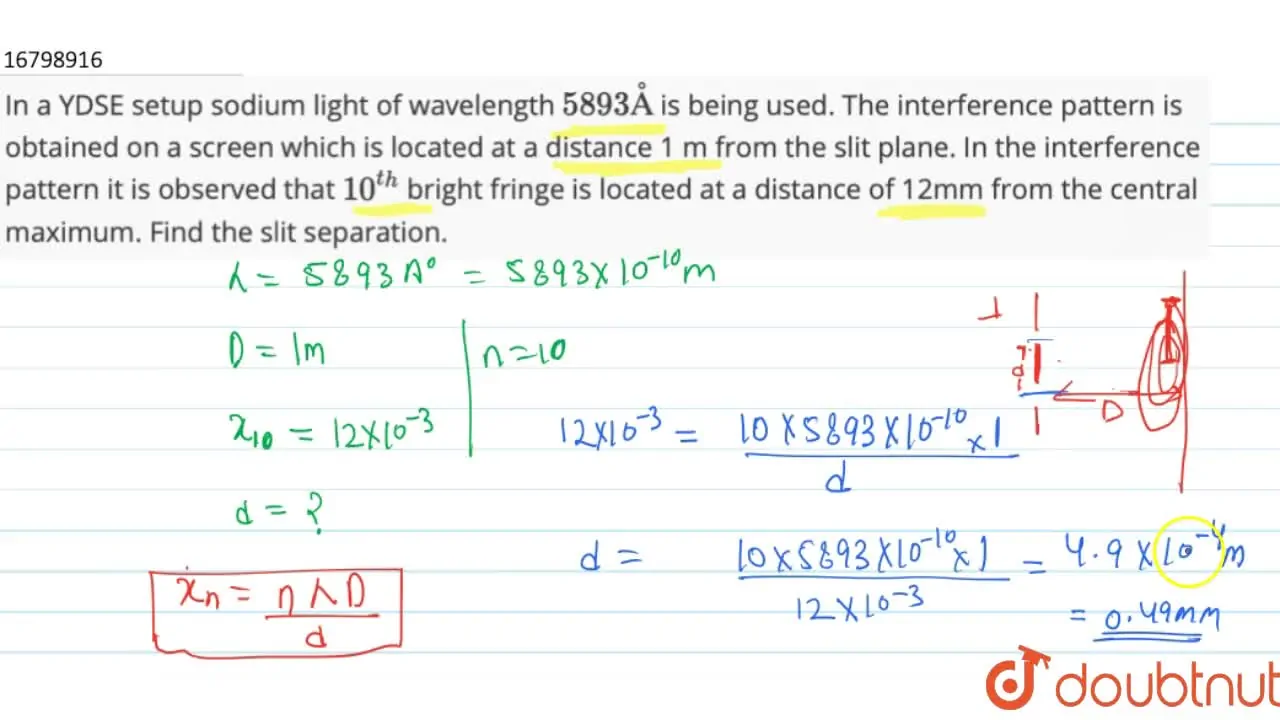 16798916
In a YDSE setup sodium light of wavelength 5893Å is being used. The interference pattern is
obtained on a screen which is located at a distance 1 m from the slit plane. In the interference
pattern it is observed that 10^th bright fringe is located at a distance of 12mm from the central
maximum. Find the slit separation.
λ = 5893 A° = 5893×10^-10 m
D = 1m
n=10
x_10 = 12×10^-3
12×10^-3 = 10×5893×10^-10×1 / d
d = ?
d = 10×5893×10^-10×1 / 12×10^-3 = 4.9×10^-4 m
= 0.49mm
x_n = nλD / d
d
D
doubtnut